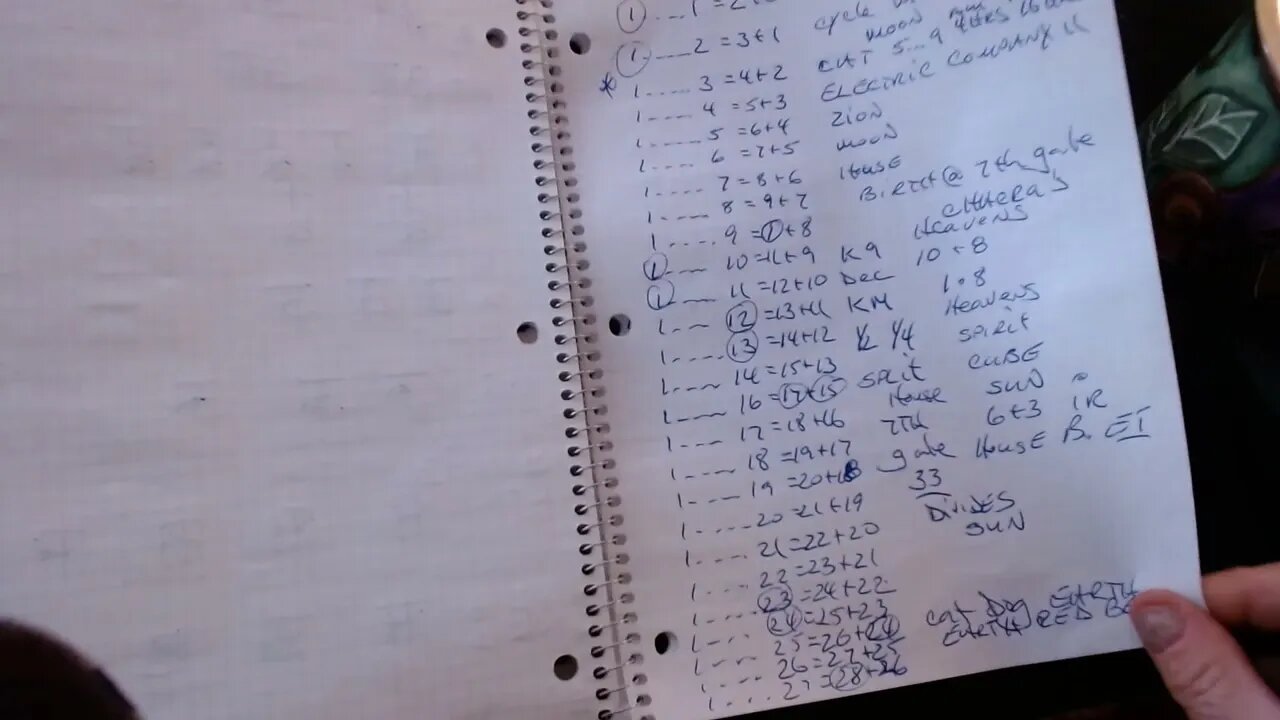 1 ... 1 = 2
1 .... 2 = 3+1 cycle
* 1 .... 3 = 4+2 moon
1 .... 4 = 5+3 CAT 5...9
1 .... 5 = 6+4 ELECTRIC COMPANY
1 .... 6 = 7+5 ZION
1 .... 7 = 8+6 moon
1 .... 8 = 9+7 HOUSE
1 .... 9 = 1+8 BIRTH @ 7th gate
1 .... 10 = 11+9 K9
1 .... 11 = 12+10 Dec Heavens
1 .... 12 = 13+11 KM 10+8
1 .... 13 = 14+12 1/2 1/4 1.8
1 .... 14 = 15+13 Heavens
1 .... 16 = 17+15 SPLIT SPIRIT
1 .... 17 = 18+16 House CUBE
1 .... 18 = 19+17 7TH SUN
1 .... 19 = 20+18 gate 6+3 IR
1 .... 20 = 21+19 33 HOUSE B. EI
1 .... 21 = 22+20 DIVIDES
1 .... 22 = 23+21 SUN
1 .... 23 = 24+22
1 .... 24 = 25+23
1 .... 25 = 26+24 cat Dog EARTH
1 .... 26 = 27+25 EARTH RED
1 .... 27 = 28+26